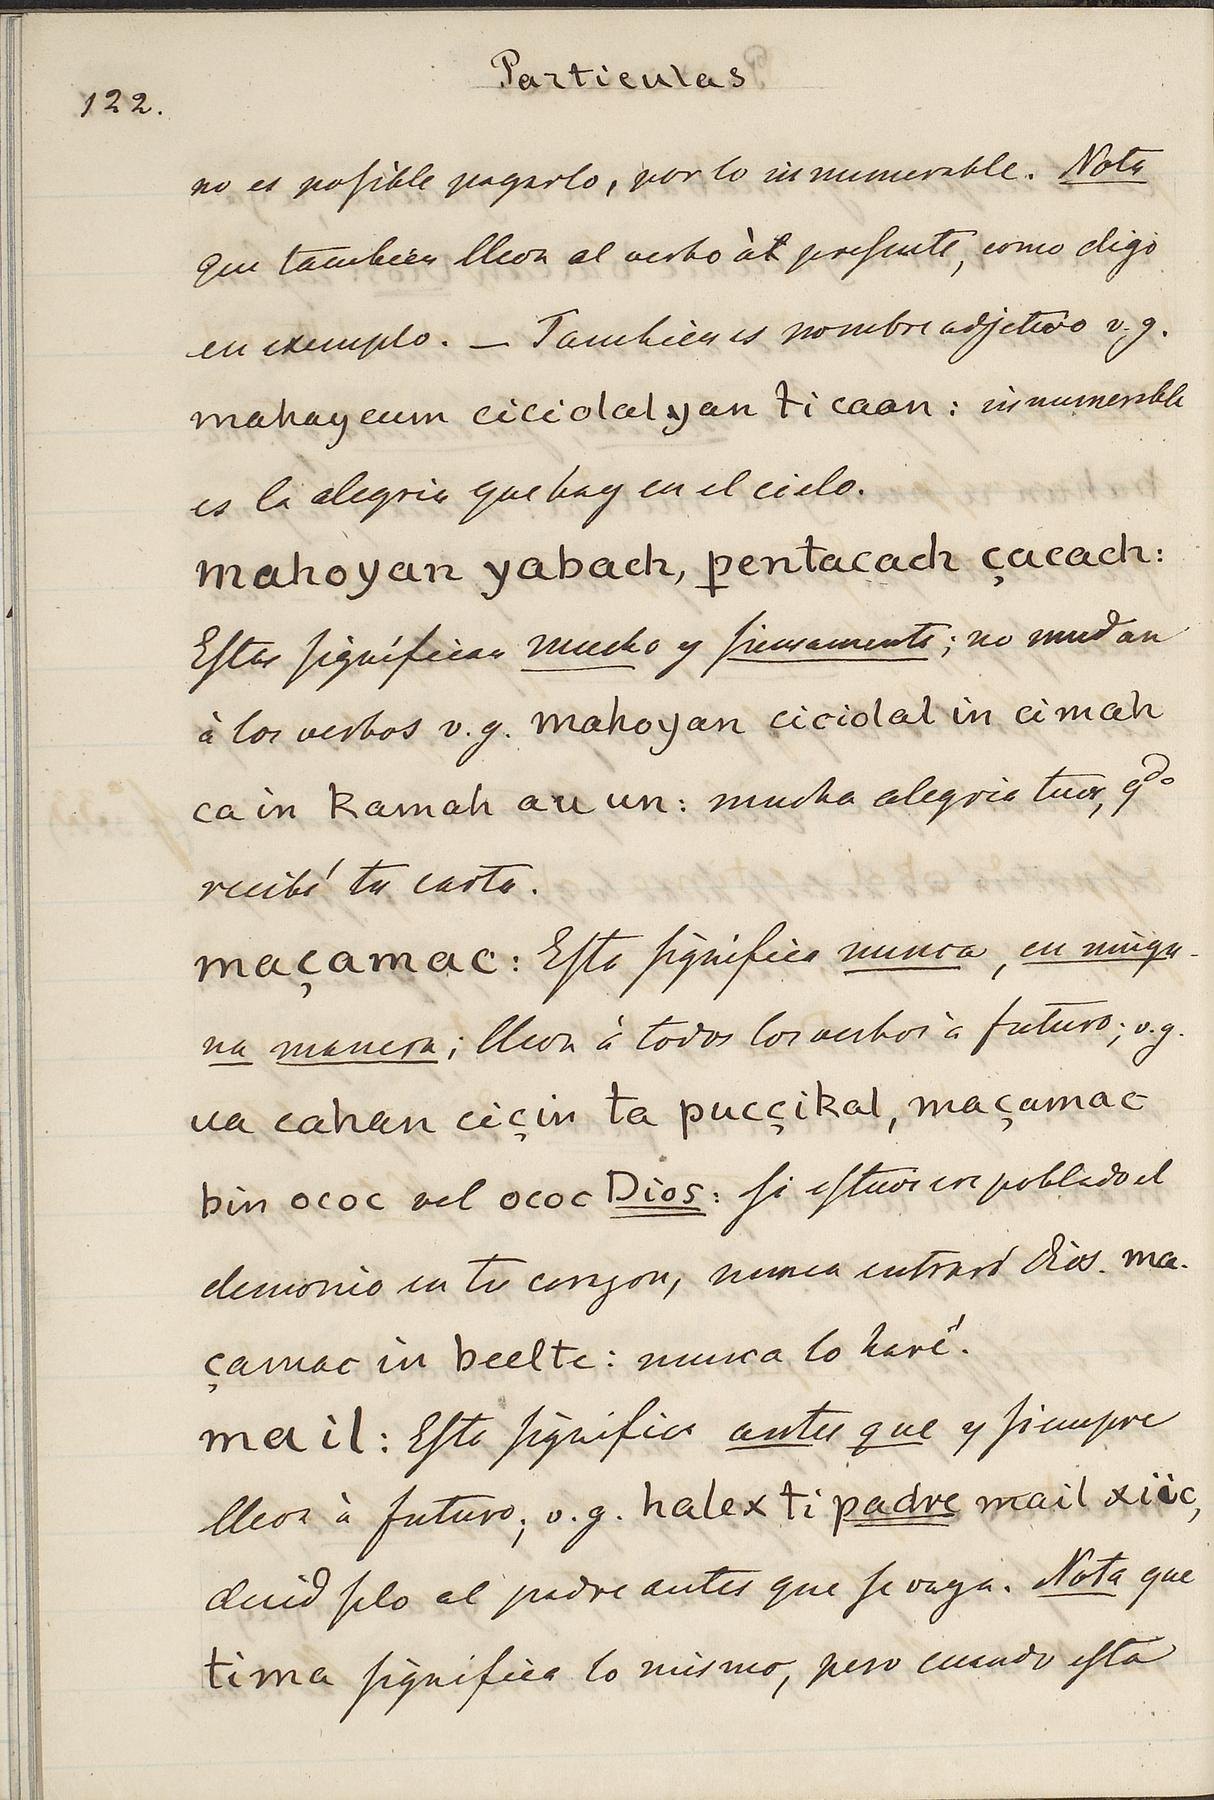 Particulas
122.
no es posible pagarlo, por lo innumerable. Nota
que tambien lleva al verbo àt presente, como digo
en exemplo. — Tambien es nombre adjetivo v.g.
mahayeum ciciolal yan ti caan: innumerable
es la alegria que hay en el cielo.
mahoyan yabach, pentacach çacach:
Estas significan mucho y piensamente; no mudan
à los verbos v.g. mahoyan ciciolal in cimah
ca in kamah au un: mucha alegria tuve, qdo
recibí tu carta.
maçamac: Esta significa nunca, en ningu-
na manera; lleva à todos los verbos à futuro; v.g.
ua cahan ciçin ta pucçikal, maçamac
bin ococ vel ococ Dios: si estuviere poblado el
demonio en tu corazon, nunca entrará Dios. ma-
çamac in beelte: nunca lo haré.
mail: Esta significa antes que y siempre
lleva à futuro; v.g. halex ti padre mail xiic,
decidselo al padre antes que se vaya. Nota que
tima significa lo mismo, pero cuando esta